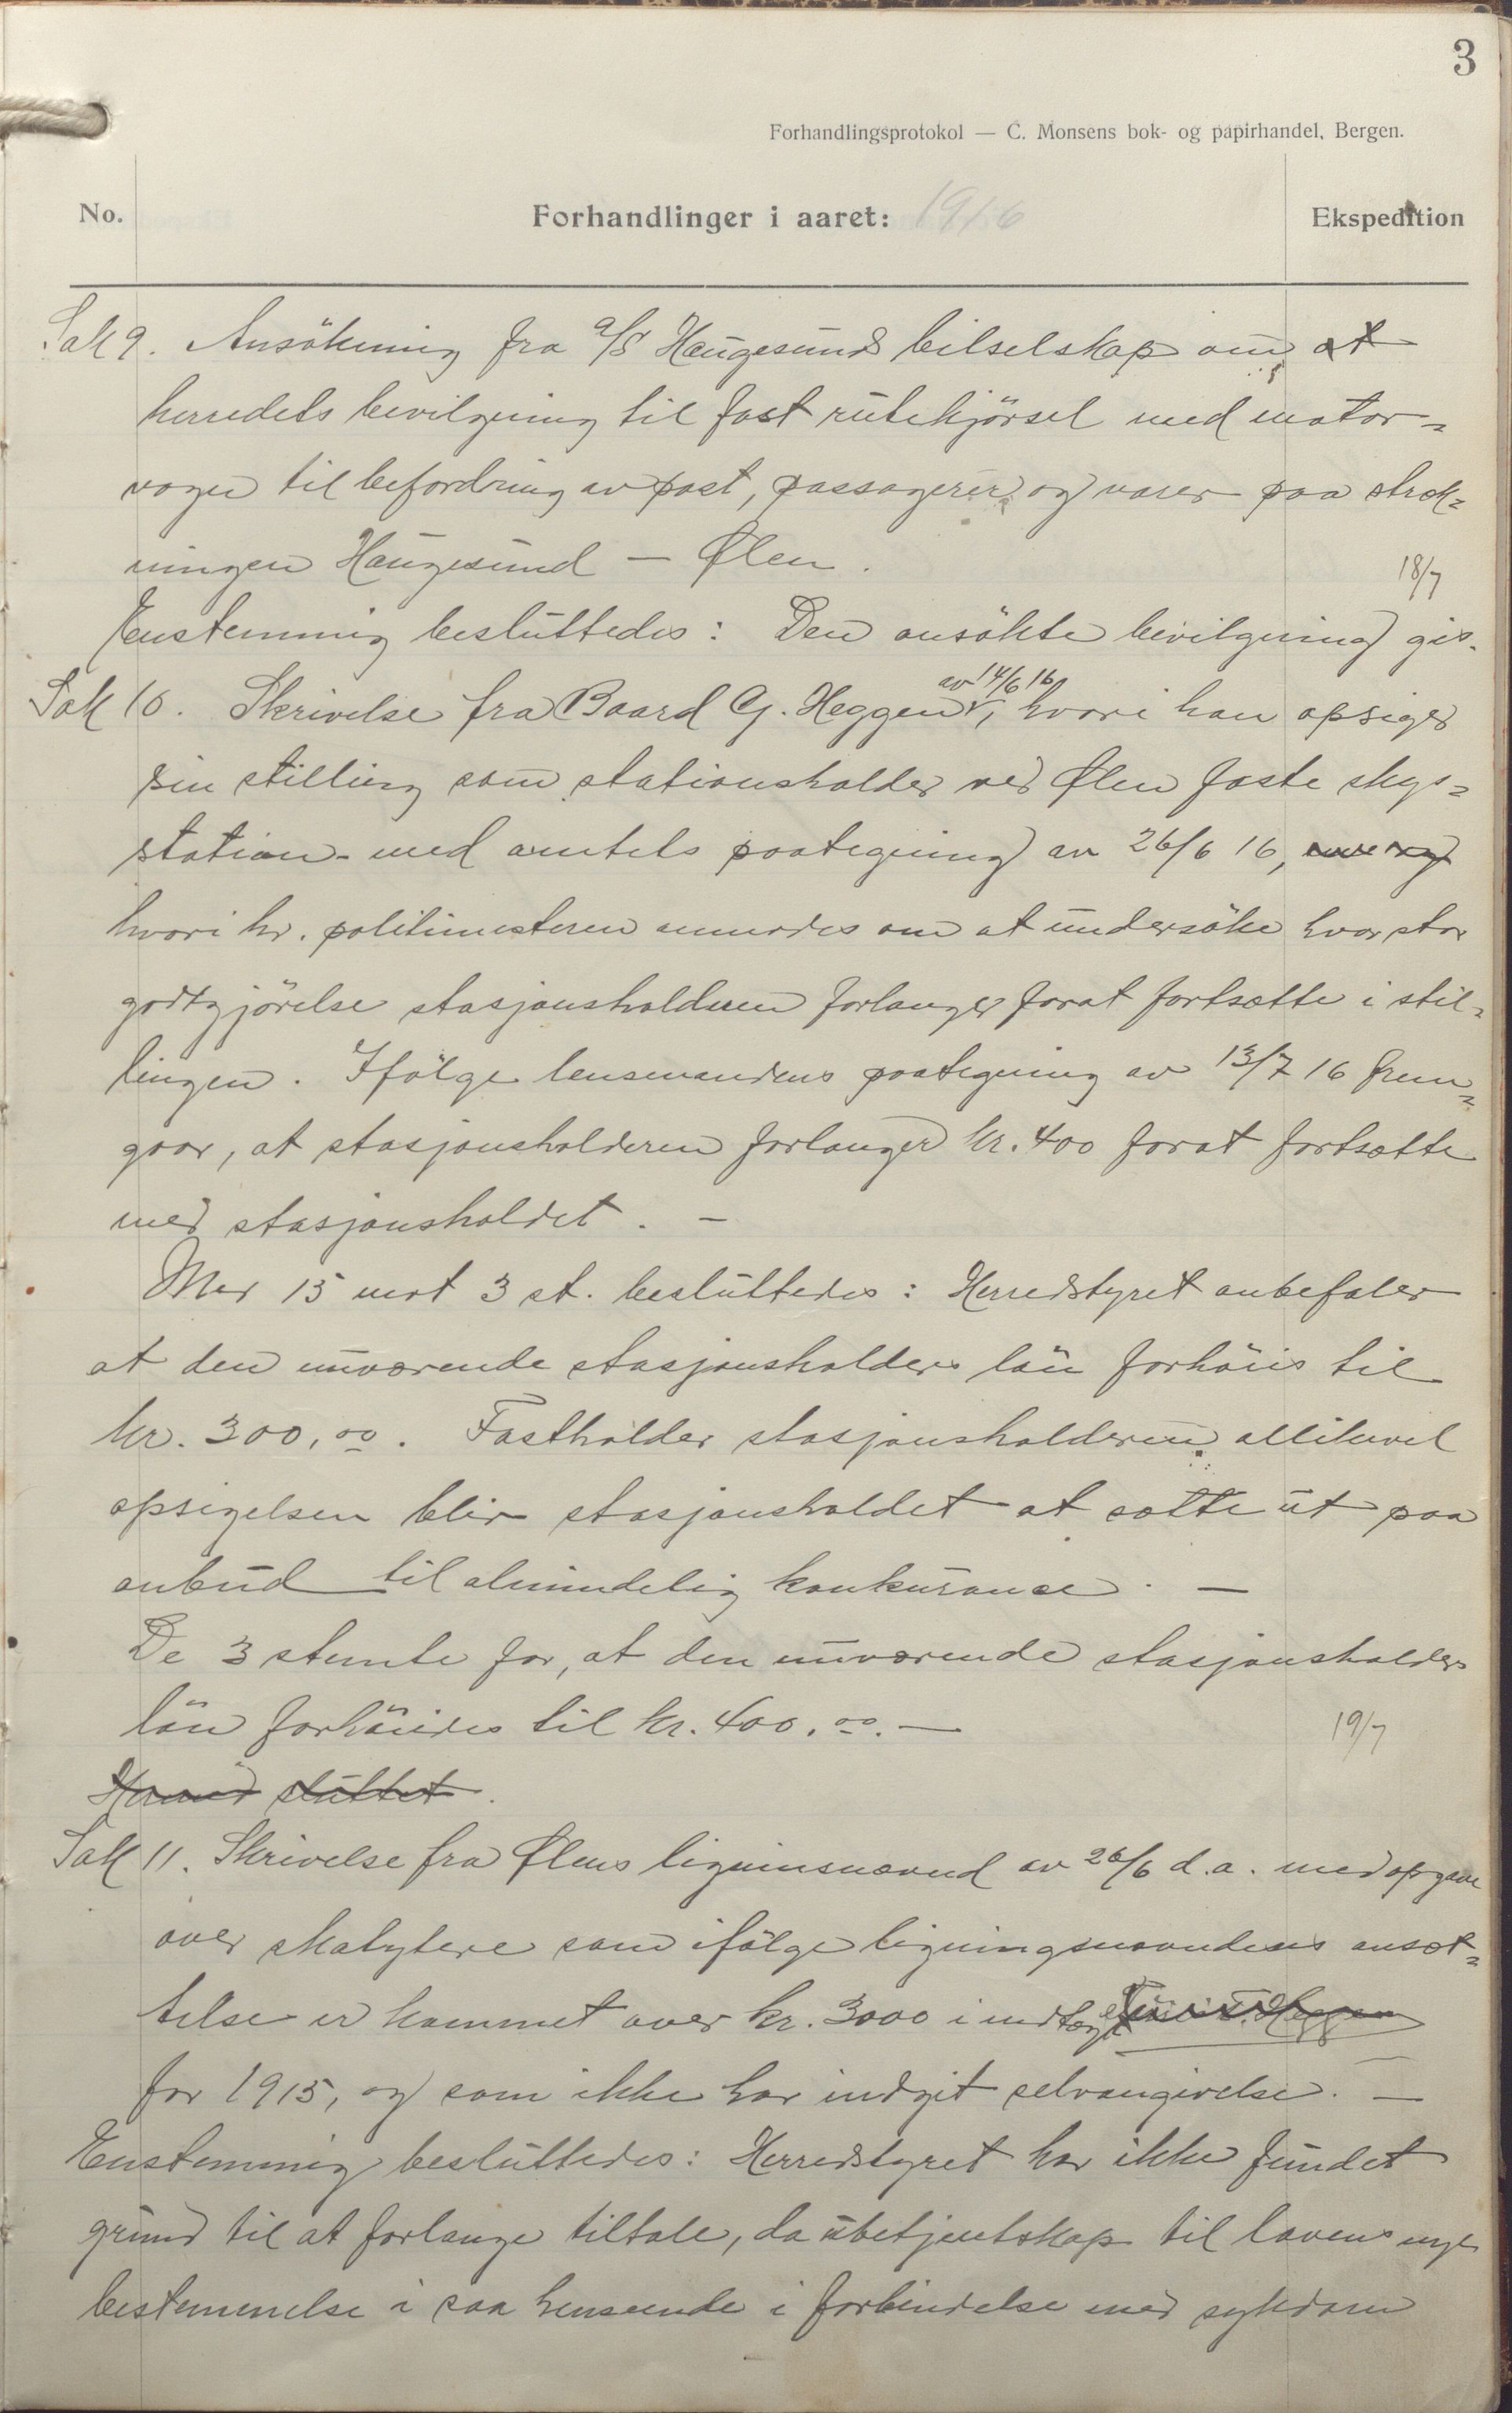 3
Forhandlingsprotokol — C. Monsens bok- og papirhandel, Bergen.
No. Forhandlinger i aaret: 1916 Ekspedition
Sak 9. Ansökning fra a/s Haugesunds bilselskap om at
herredets bevilgning til fast rutekjörsel med motor=
vogn til befordring av post, passagerer og varer paa stræk=
ningen Haugesund — Ølen.
18/7
Enstemmig besluttedes: Den ansökte bevilgning gis.
Sak 10. Skrivelse fra Baard G. Heggen av 14/6 16, hvori han opsiger
sin stilling som stationsholder ved Ølen faste skys=
station - med amtets paategning av 26/6 16,
hvori hr. politimesteren anmodes om at undersöke hvor stor
godtgjörelse stasjonsholderen forlanger forat fortsætte i stil=
lingen. Ifölge lensmandens paategning av 13/7 16 frem=
gaar, at stasjonsholderen forlanger kr. 400 forat fortsætte
med stasjonsholdet. —
Med 15 mot 3 st. besluttedes: Herredstyret anbefaler
at den nuværende stasjonsholders lön forhöies til
kr. 300,00. Fastholder stasjonsholderen allikevel
opsigelsen blir stasjonsholdet at sætte ut paa
anbud til almindelig konkurance. —
De 3 stemte for, at den nuværende stasjonsholders
lön forhöiedes til kr. 400.00. —
19/7
Hermed sluttet.
Sak 11. Skrivelse fra Ølens ligninsnævnd av 26/6 d.a. med opgave
over skatytere som ifölge ligningsnævndens ansæt=
telse er kommet over kr. 3000 i indtægt
for 1915, og som ikke har indgit selvangivelse. —
Enstemmig besluttedes: Herredstyret har ikke fundet
grund til at forlange tiltale, da ubekjentskap til lovens nye
bestemmelse i saa henseende i forbindelse med sykdom